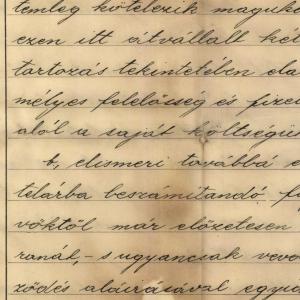 temleg kötelezik maguka
ezen itt átvállalt két
tartozás tekintetében ela
mélyes felelősség és fize
alól a saját költségü
b, elismeri továbbá e
telárba beszámitandó f
vőktől már előzetesen
ranál,- s ugyancsak vevő
ződés aláirásával egyi